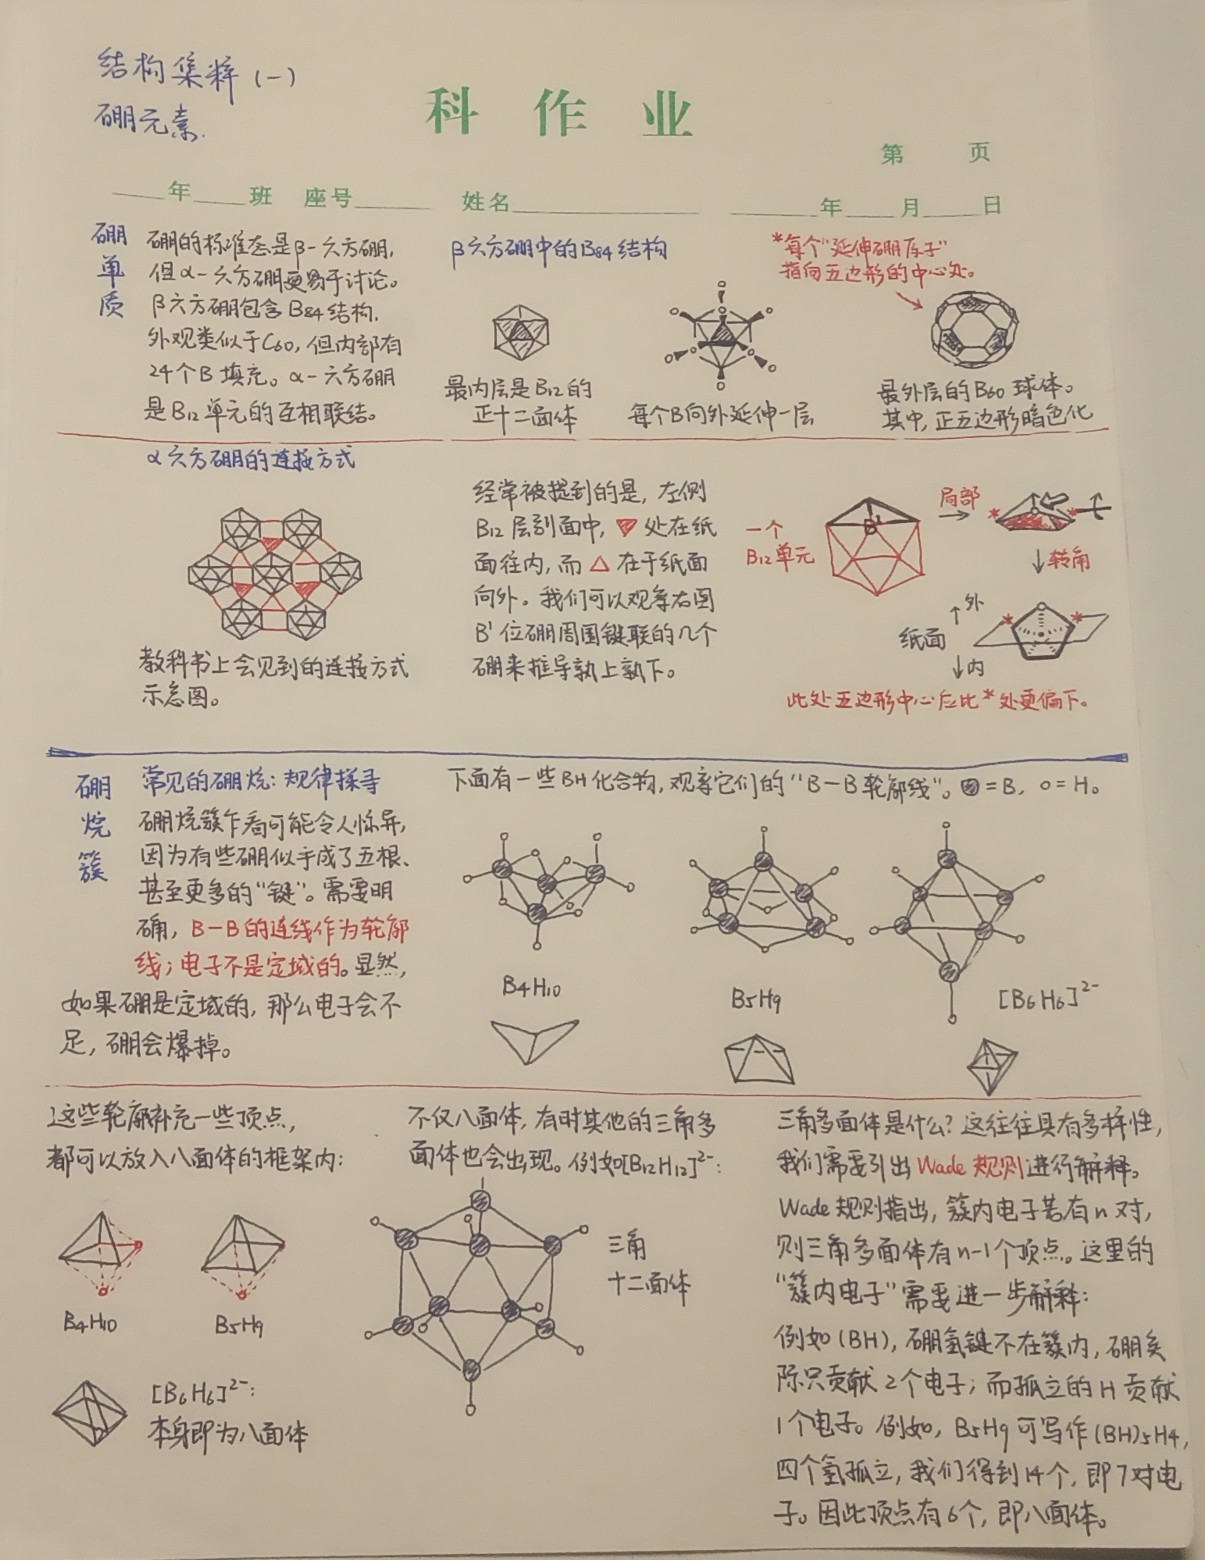 结构集粹(一)
硼元素.
科 作 业
第 页
年 班 座号 姓名 年 月 日
硼单质
硼的标准态是β-六方硼,
但α-六方硼更易于讨论。
β六方硼包含B84结构,
外观类似于C60,但内部有
24个B填充。α-六方硼
是B12单元的互相联结。
β六方硼中的B84结构
最内层是B12的
正十二面体
每个B向外延伸一层
*每个"延伸硼原子"
指向五边形的中心处。
最外层的B60球体。
其中,正五边形暗色化
α六方硼的连接方式
教科书上会见到的连接方式
示意图。
经常被提到的是,左侧
B12层剖面中,▽处在纸
面往内,而△在于纸面
向外。我们可以观察右图
B'位硼周围键联的几个
硼来推导孰上孰下。
一个
B12单元
B'
局部
* *
转角
外
纸面
内
* *
此处五边形中心应比*处更偏下。
硼烷簇
常见的硼烷:规律探寻
硼烷簇乍看可能令人惊异,
因为有些硼似乎成了五根、
甚至更多的"键"。需要明
确,B-B的连线作为轮廓
线;电子不是定域的。显然,
如果硼是定域的,那么电子会不
足,硼会爆掉。
下面有一些BH化合物,观察它们的"B-B轮廓线"。=B, o=H。
B4H10
B5H9
[B6H6]2-
这些轮廓补充一些顶点,
都可以放入八面体的框架内:
B4H10
B5H9
[B6H6]2-:
本身即为八面体
不仅八面体,有时其他的三角多
面体也会出现。例如[B12H12]2-:
三角
十二面体
三角多面体是什么?这往往具有多样性,
我们需要引出Wade规则进行解释。
Wade规则指出,簇内电子若有n对,
则三角多面体有n-1个顶点。这里的
"簇内电子"需要进一步解释:
例如(BH),硼氢键不在簇内,硼实
际只贡献2个电子;而孤立的H贡献
1个电子。例如,B5H9可写作(BH)5H4,
四个氢孤立,我们得到14个,即7对电
子。因此顶点有6个,即八面体。